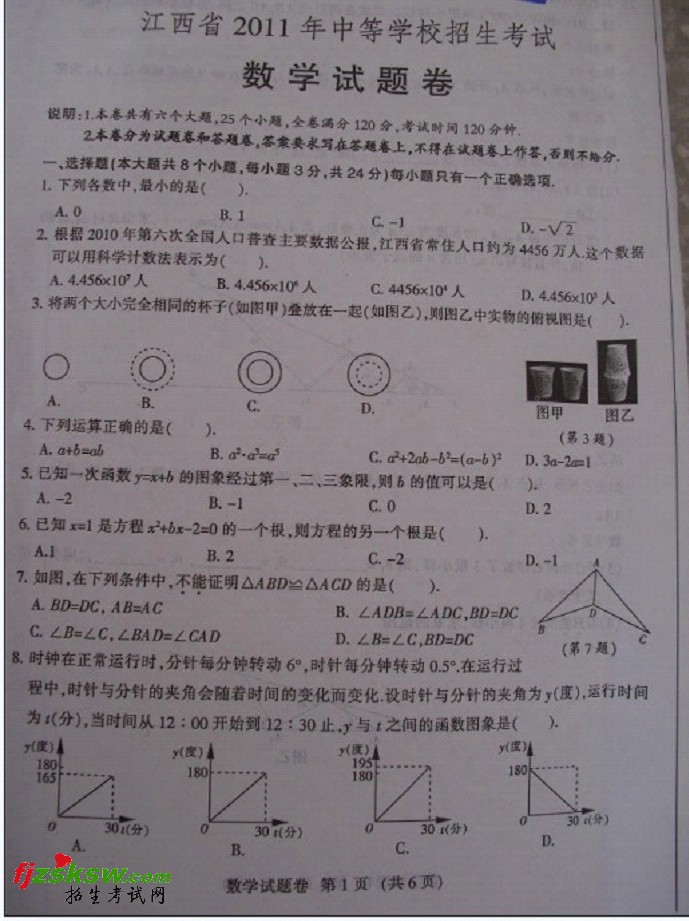 江西省 2011 年中等学校招生考试
数学试题卷
说明:1.本卷共有六个大题,25个小题,全卷满分120分,考试时间120分钟.
2.本卷分为试题卷和答题卷,答案要求写在答题卷上,不得在试题卷上作答,否则不给分.
一、选择题(本大题共8个小题,每小题3分,共24分)每小题只有一个正确选项.
1. 下列各数中,最小的是( ).
A. 0 B. 1 C. -1 D. -√2
2. 根据2010年第六次全国人口普查主要数据公报,江西省常住人口约为4456万人.这个数据
可以用科学计数法表示为( ).
A. 4.456×10⁷人 B. 4.456×10⁶人 C. 4456×10⁴人 D. 4.456×10³人
3. 将两个大小完全相同的杯子(如图甲)叠放在一起(如图乙),则图乙中实物的俯视图是( ).
A. B. C. D.
图甲 图乙
(第3题)
4. 下列运算正确的是( ).
A. a+b=ab B. a²·a³=a⁵ C. a²+2ab-b²=(a-b)² D. 3a-2a=1
5. 已知一次函数y=x+b的图象经过第一、二、三象限,则b的值可以是( ).
A. -2 B. -1 C. 0 D. 2
6. 已知x=1是方程x²+bx-2=0的一个根,则方程的另一个根是( ).
A.1 B. 2 C. -2 D. -1
7. 如图,在下列条件中,不能证明△ABD≌△ACD的是( ).
A. BD=DC, AB=AC B. ∠ADB=∠ADC,BD=DC
C. ∠B=∠C,∠BAD=∠CAD D. ∠B=∠C,BD=DC
A
B
D
C
(第7题)
8. 时钟在正常运行时,分针每分钟转动6°,时针每分钟转动0.5°.在运行过
程中,时针与分针的夹角会随着时间的变化而变化.设时针与分针的夹角为y(度),运行时间
为t(分),当时间从12:00开始到12:30止,y与t之间的函数图象是( ).
y(度) y(度) y(度) y(度)
180 180 195 180
165 180
O 30 t(分) O 30 t(分) O 30 t(分) O 30 t(分)
A. B. C. D.
数学试题卷 第1页 (共6页)
fjzsksw.com
招生考试网